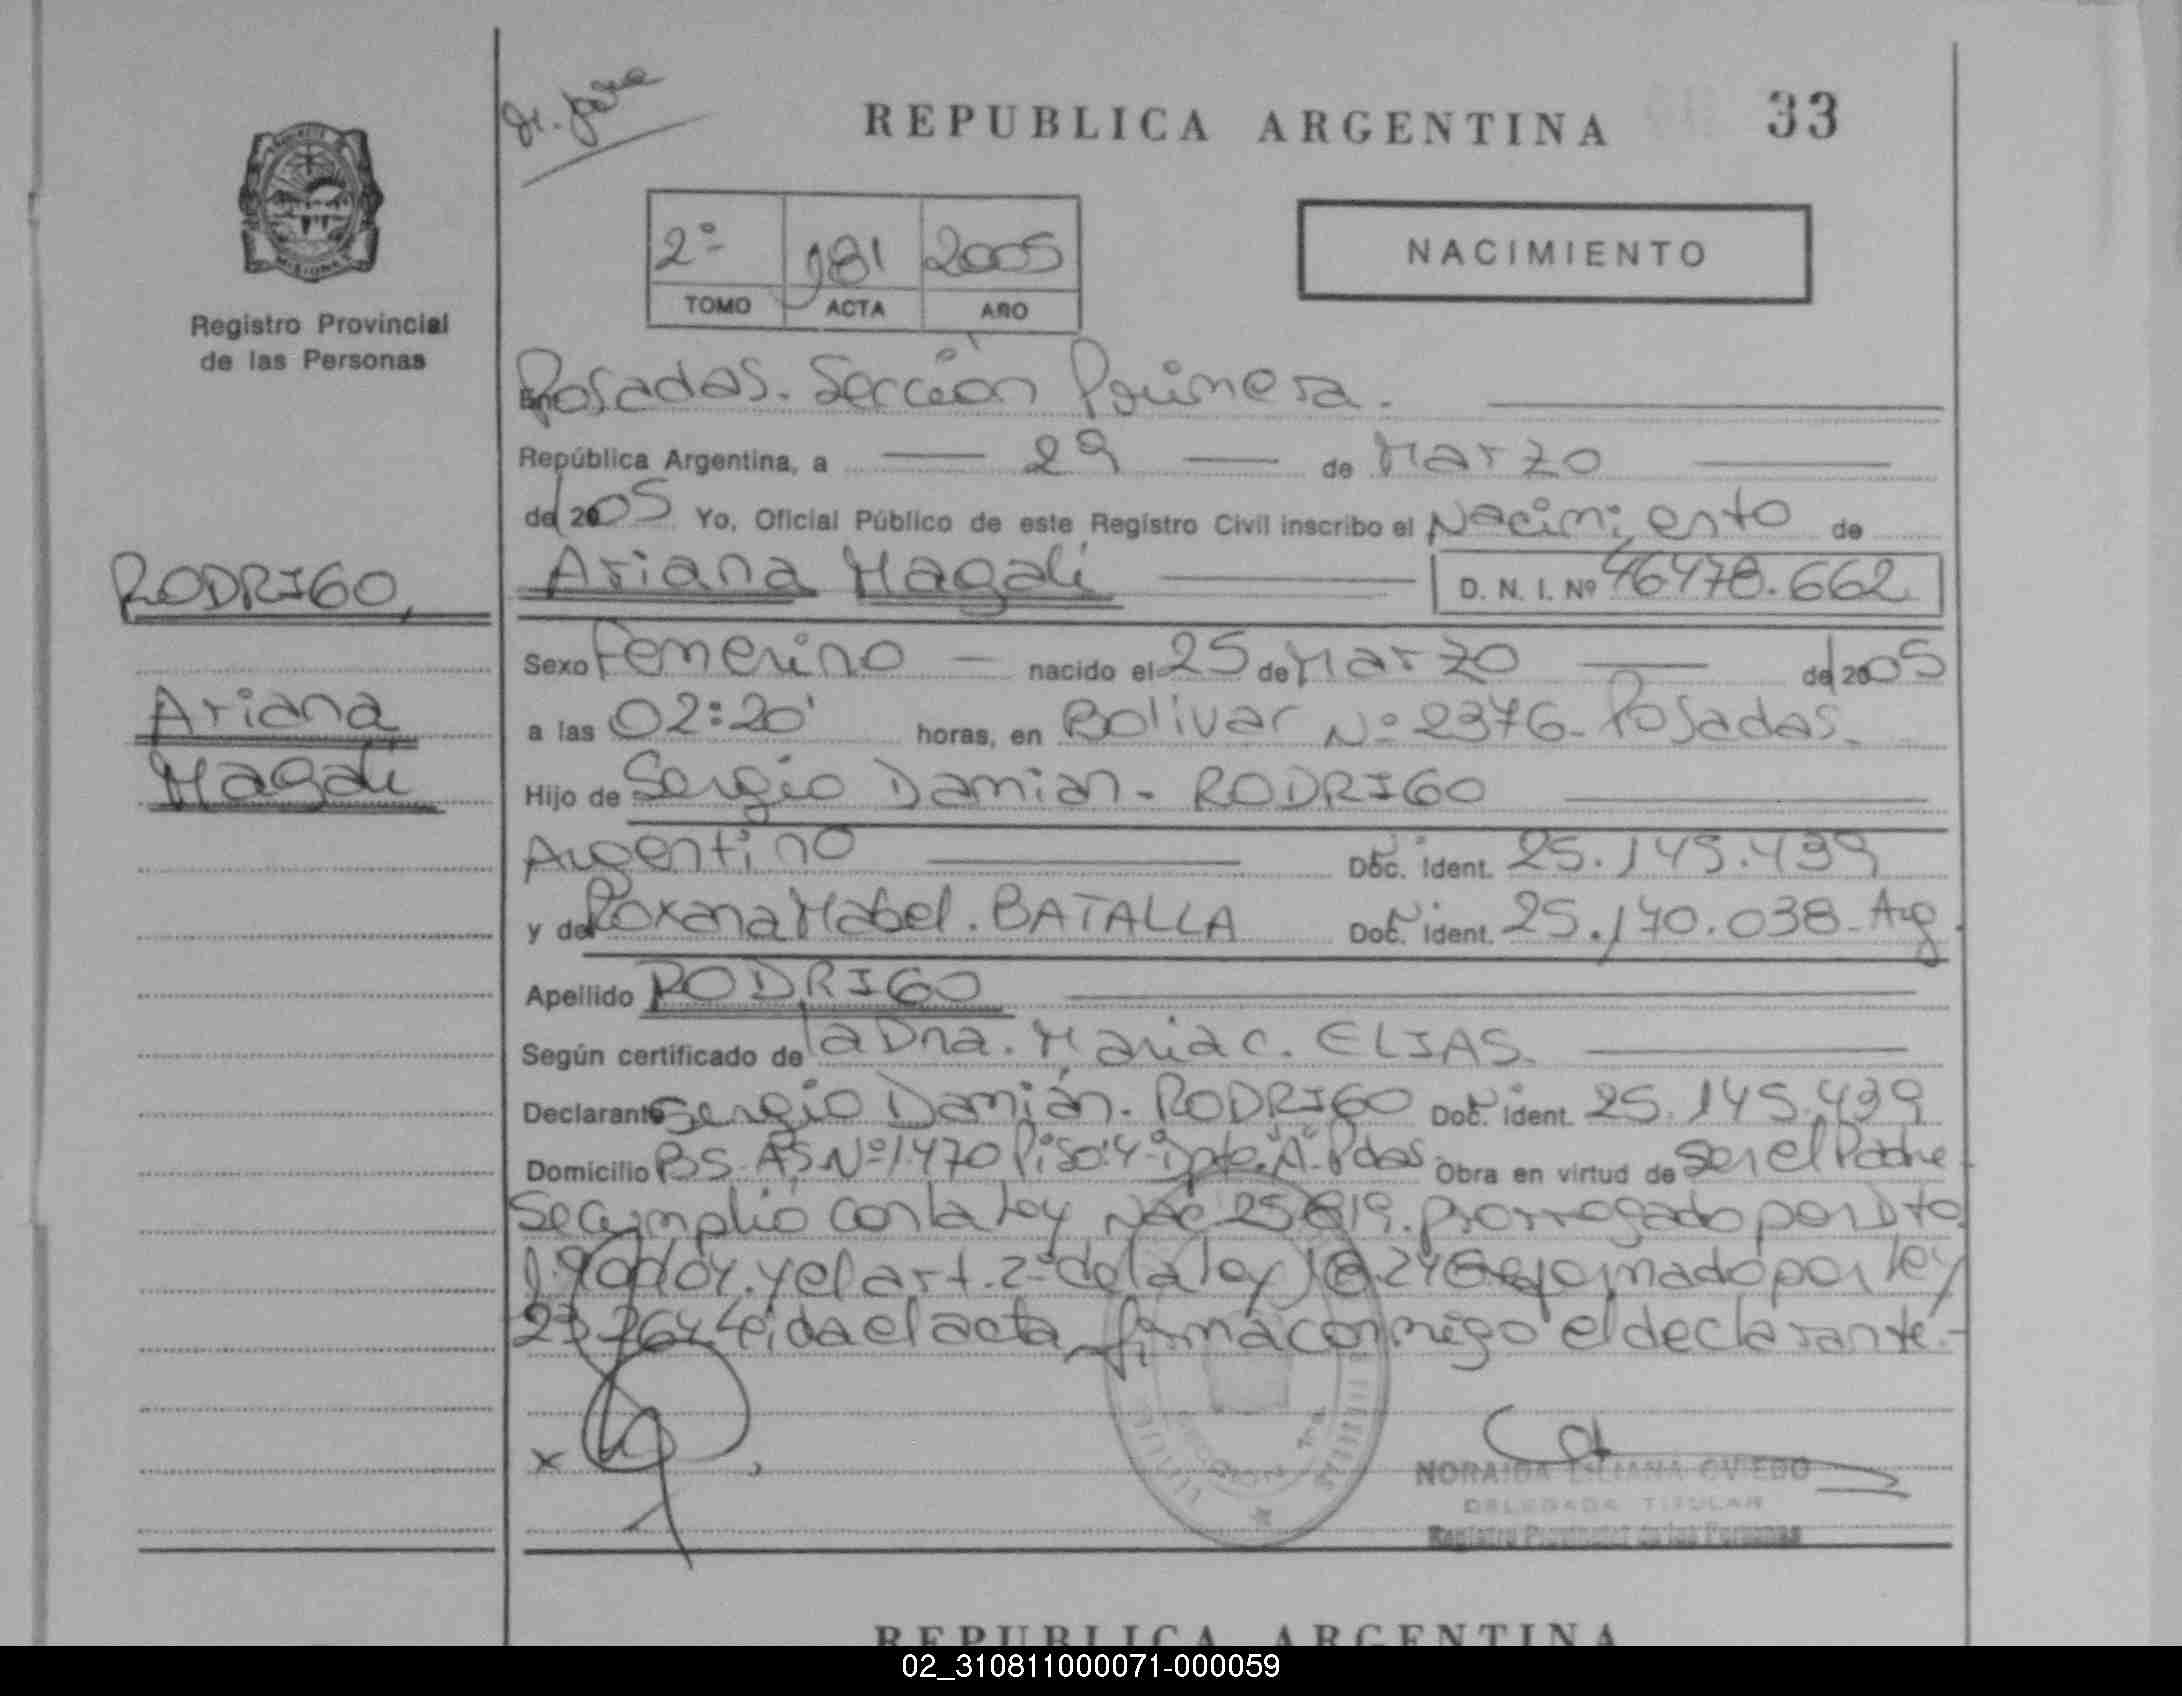 REPUBLICA ARGENTINA
33
2º 181 2005
TOMO ACTA AÑO
NACIMIENTO
MISIONES
Registro Provincial
de las Personas
RODRIGO,
Ariana
Magali
En Posadas. Sección Primera.
República Argentina, a 29 de Marzo
del 2005 Yo, Oficial Público de este Registro Civil inscribo el Nacimiento de
Ariana Magali D. N. I. Nº 46478.662
Sexo Femenino nacido el 25 de Marzo del 2005
a las 02:20' horas, en Bolivar Nº 2376- Posadas.
Hijo de Sergio Damian - RODRIGO
Argentino Doc. Ident. 25.145.439
y de Roxana Mabel. BATALLA Doc. Ident. 25.170.038- Arg
Apellido RODRIGO
Según certificado de la Dra. Maria C. ELIAS.
Declarante Sergio Damián. RODRIGO Doc. Ident. 25.145.439
Domicilio BS. AS. Nº 1470 Piso: 4º Dpto. "A" - Pdas Obra en virtud de ser el Padre
Se cumplió con la Ley Nac 25819. prorrogado por Dto
y el art. 2º de la ley 18.248 por ley
23.264 Leida el acta, firma conmigo el declarante.-
X
NORAIDA LILIANA OVIEDO
DELEGADA TITULAR
Registro Provincial de las Personas
REPUBLICA ARGENTINA
02_310811000071-000059